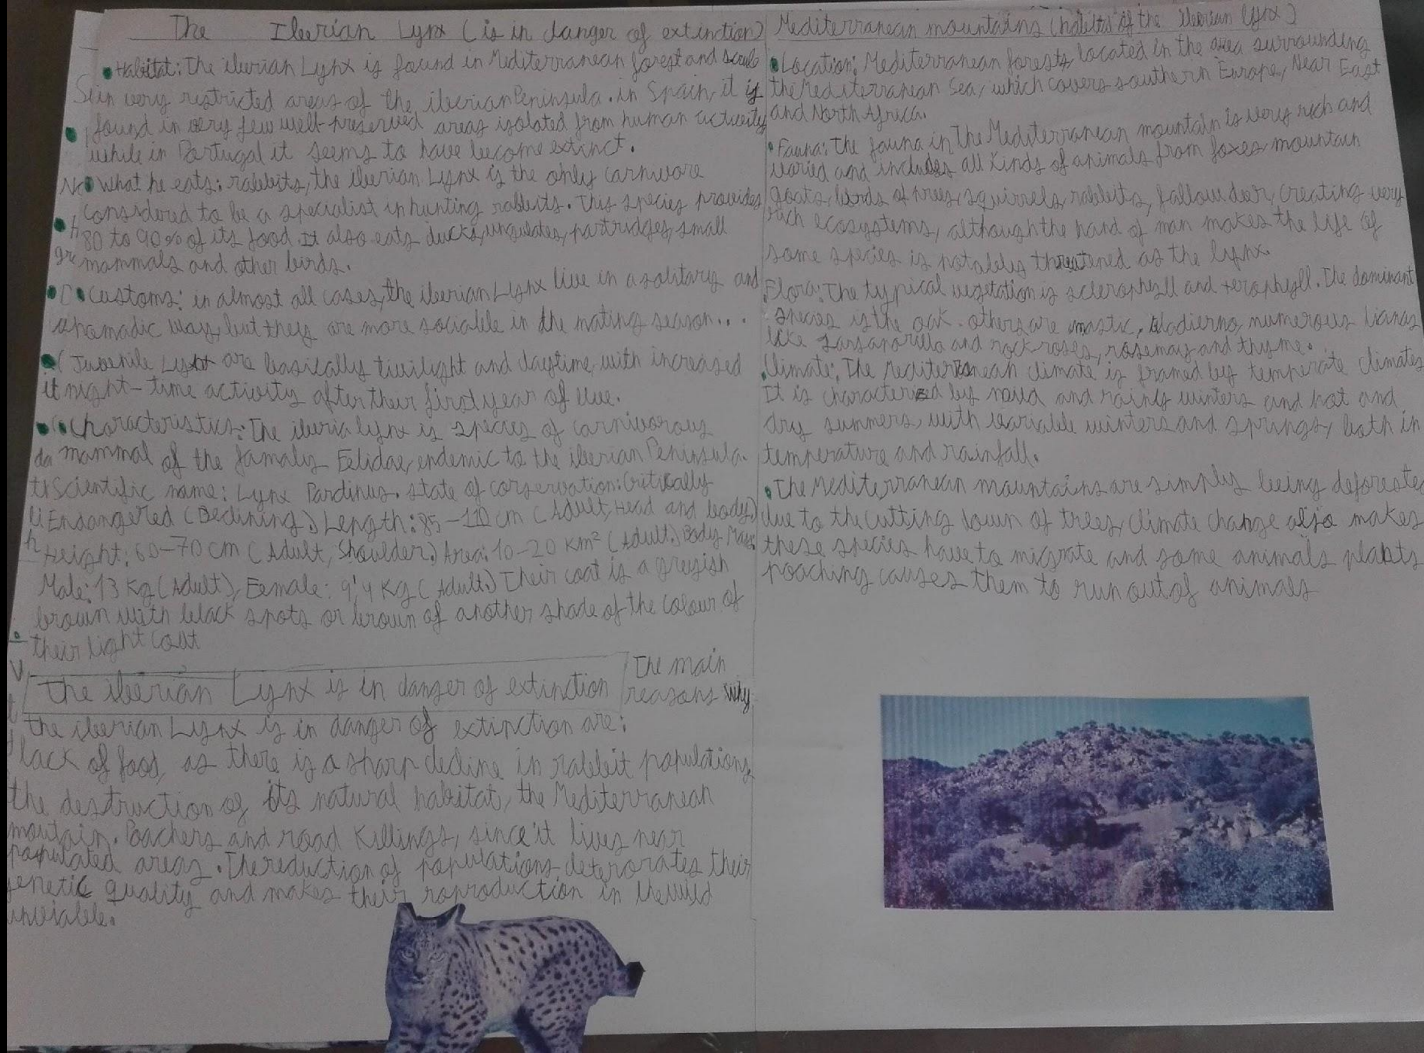 The Iberian Lynx (is in danger of extinction)
Habitat: The iberian Lynx is found in Mediterranean forest and scrub
in very restricted areas of the iberian Peninsula. in Spain, it is
found in very few well-preserved areas isolated from human activity
while in Portugal it seems to have become extinct.
What he eats: rabbits, the iberian Lynx is the only carnivore
considered to be a specialist in hunting rabbits. This species provides
80 to 90% of its food. It also eats ducks, ungulates, partridges, small
mammals and other birds.
Customs: in almost all cases, the iberian Lynx live in a solitary and
nomadic way, but they are more sociable in the mating season...
Juvenile Lynx are basically twilight and daytime, with increased
night-time activity after their first year of
Characteristics: The iberia lynx is species of carnivorous
mammal of the famaly Felidae, endemic to the iberian Peninsula.
Scientific name: Lynx Pardinus. state of conservation: Critically
Endangered (Declining) Length: 85-110 cm (Adult, Head and body)
Height: 60-70 cm (Adult, Shoulder) Area: 10-20 Km² (Adult) Body Mass
Male: 13 Kg (Adult), Female: 9'4 Kg (Adult) Their coat is a greyish
brown with black spots or brown of another shade of the colour of
their light coat
The iberian Lynx is in danger of extinction
The main
reasons why
the iberian Lynx is in danger of extinction are:
lack of food, as there is a sharp decline in rabbit populations,
the destruction of its natural habitat, the Mediterranean
mountain. Poachers and road Killings, since it lives near
populated areas. The reduction of populations deteriorates their
genetic quality and makes their reproduction in the wild
unviable.
Mediterranean mountains (habitat of the Iberian Lynx)
Location: Mediterranean forests located in the area surrounding
the Mediterranean Sea, which covers southern Europe, Near East
and North Africa.
Fauna: The fauna in The Mediterranean mountain is very rich and
varied and includes all kinds of animals from foxes, mountain
goats, birds of prey, squirrels, rabbits, fallow deer, creating very
rich ecosystems, although the hand of man makes the life of
some species is notably threatened as the lynx.
Flora: The typical vegetation is sclerophyll and xerophyll. The dominant
species is the oak. others are mastic, aladierno, numerous lianas
like sarsaparilla and rockroses, rosemary and thyme.
Climate: The mediterranean climate is framed by temperate climates
It is characterized by mild and rainy winters and hot and
dry summers, with variable winters and springs, both in
temperature and rainfall.
The Mediterranean mountains are simply being deforested
due to the cutting down of trees, climate change also makes
these species have to migrate and some animals plants
poaching causes them to run out of animals